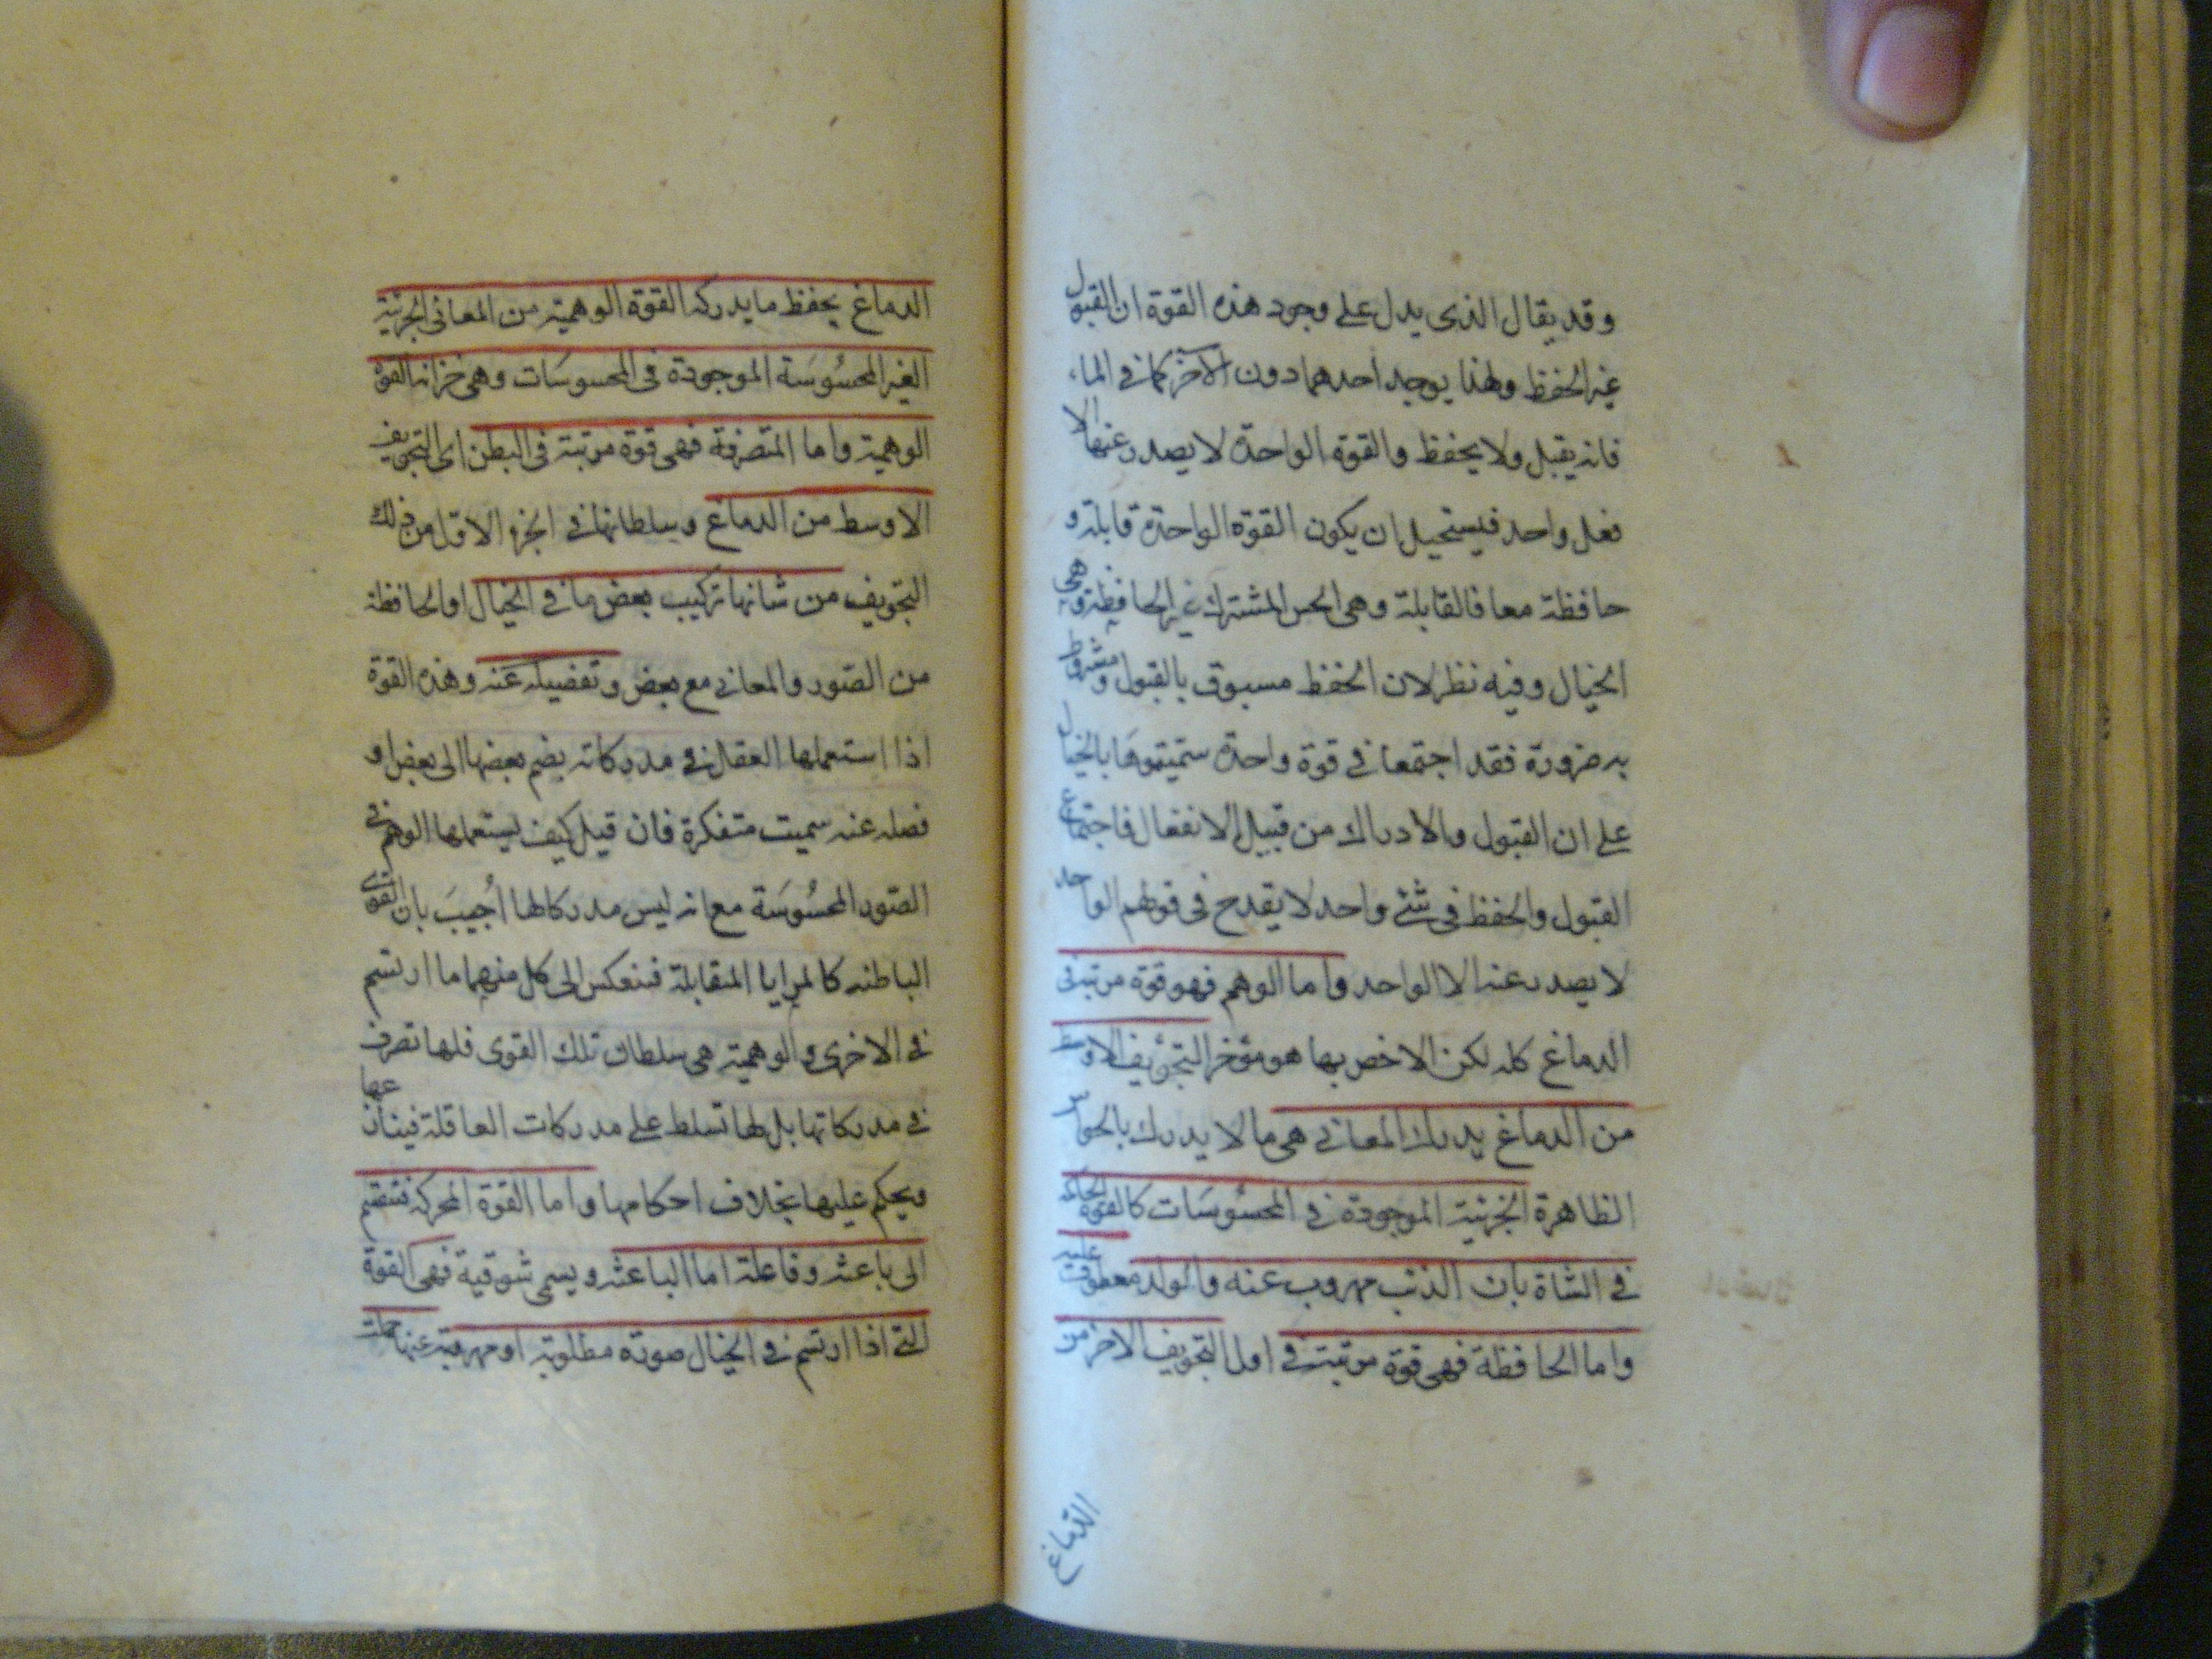 وقد يقال الذى يدل على وجود هذه القوة ان القبول
غير الحفظ ولهذا يوجد احدهما دون الآخر كما فى الماء
فانه يقبل ولا يحفظ والقوة الواحدة لا يصدر عنها الا
فعل واحد فيستحيل ان يكون القوة الواحدة قابلة و
حافظة معا فالقابلة وهى الحس المشترك غير الحافظة وهى
الخيال وفيه نظر لان الحفظ مسبوق بالقبول ومشروط
به ضرورة فقد اجتمعا فى قوة واحدة سميتموها بالخيال
على ان القبول والادراك من قبيل الانفعال فاجتماع
القبول والحفظ فى شئ واحد لا يقدح فى قولهم الواحد
لا يصدر عنه الا الواحد واما الوهم فهو قوة مرتبة فى
الدماغ كله لكن الاخص بها هو مؤخر التجويف الاوسط
من الدماغ يدرك المعانى هى ما لا يدرك بالحواس
الظاهرة الجزئية الموجودة فى المحسوسات كالقوة الحاكمة
فى الشاة بان الذئب مهروب عنه والولد معطوف عليه
واما الحافظة فهى قوة مرتبة فى اول التجويف الاخر من
الدماغ
الدماغ يحفظ ما يدركه القوة الوهمية من المعانى الجزئية
الغير المحسُوسَة الموجودة فى المحسوسَات وهى خزانة القوة
الوهمية واما المتصرفة فهى قوة مرتبة فى البطن اى التجويف
الاوسط من الدماغ وسلطانها فى الجزء الاول من ذلك
التجويف من شانها تركيب بعض ما فى الخيال او الحافظة
من الصّور والمعانى مع بعض وتفضيله عَنه وهذه القوة
اذا استعملها العقل فى مدركاته بضم بعضها الى بعض او
فصله عنه سميت متفكرة فان قيل كيف يستعملها الوهم فى
الصّور المحسُوسَة مع انه ليس مدركا لها اُجيبَ بان القوى
الباطنه كالمرايا المتقابلة فينعكس الى كل منهما ما ارتسم
فى الاخرى والوهمية هى سلطان تلك القوى فلها تصرف
فى مدركاتها بل لها تسلط على مدركات العاقلة فينازعها
ويحكم عليها بخلاف احكامها واما القوة المحركة فتنقسم
الى باعثه وفاعلة اما الباعثه ويسمى شوقية فهى القوة
التى اذا ارتسم فى الخيال صورة مطلوبة او مهروبة عنها حملت